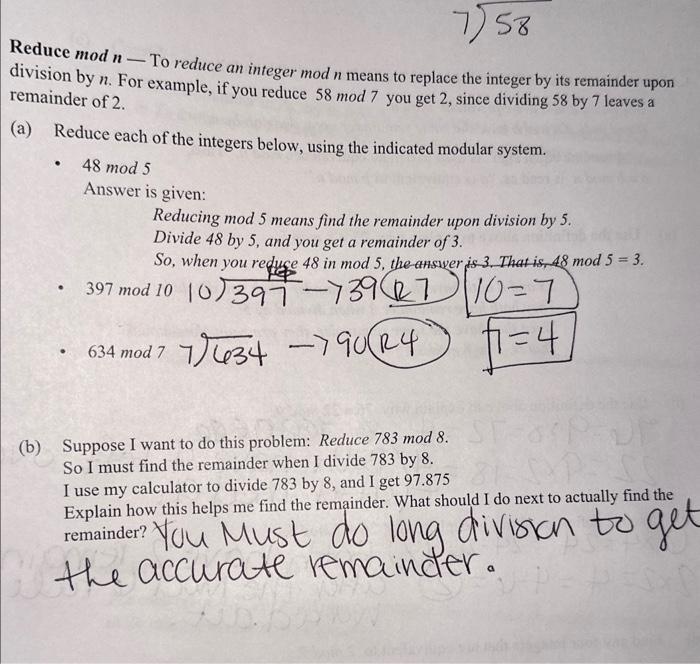 7)58
Reduce mod n — To reduce an integer mod n means to replace the integer by its remainder upon
division by n. For example, if you reduce 58 mod 7 you get 2, since dividing 58 by 7 leaves a
remainder of 2.
(a) Reduce each of the integers below, using the indicated modular system.
• 48 mod 5
Answer is given:
Reducing mod 5 means find the remainder upon division by 5.
Divide 48 by 5, and you get a remainder of 3.
So, when you reduce 48 in mod 5, the answer is 3. That is, 48 mod 5 = 3.
• 397 mod 10 10)397 → 39 R7 10=7
• 634 mod 7 7)634 → 90 R4 7=4
(b) Suppose I want to do this problem: Reduce 783 mod 8.
So I must find the remainder when I divide 783 by 8.
I use my calculator to divide 783 by 8, and I get 97.875
Explain how this helps me find the remainder. What should I do next to actually find the
remainder? You Must do long division to get
the accurate remainder.